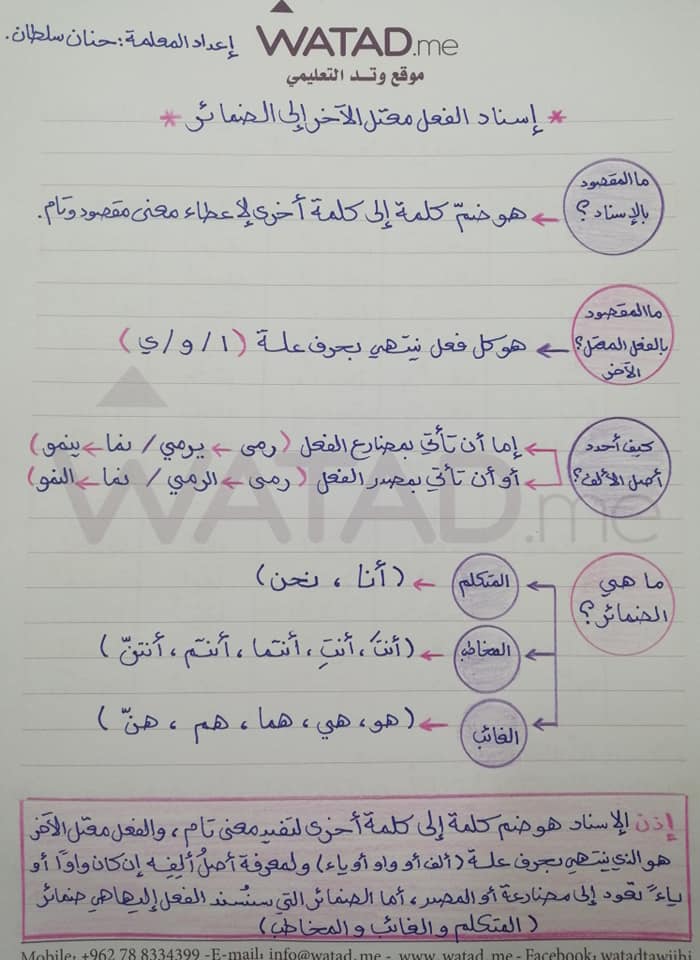 WATAD.me
إعداد المعلمة: حنان سلطان.
موقع وتد التعليمي
* إسناد الفعل معتل الآخر إلى الضمائر *
ما المقصود بالإسناد؟ ← هو ضمّ كلمة إلى كلمة أخرى لإعطاء معنى مقصود وتام.
ما المقصود بالفعل المعتل الآخر؟ ← هو كل فعل ينتهي بحرف علة (ا / و / ي)
كيف أحدد أصل الألف؟
← إما أن تأتي بمضارع الفعل (رمى ← يرمي / نما ← ينمو)
← أو أن تأتي بمصدر الفعل (رمى ← الرمي / نما ← النمو)
WATAD.me
ما هي الضمائر؟
← المتكلم ← (أنا ، نحن)
← المخاطب ← (أنتَ، أنتِ، أنتما، أنتم، أنتنّ)
← الغائب ← (هو، هي، هما، هم، هنّ)
إذن الإسناد هو ضم كلمة إلى كلمة أخرى لتفيد معنى تام، والفعل معتل الآخر
هو الذي ينتهي بحرف علة (ألف أو واو أو ياء) ولمعرفة أصلُ ألفِه إن كان واوًا أو
ياءً نعود إلى مضارعة أو المصدر، أما الضمائر التي سنُسند الفعل إليها هي ضمائر
(المتكلم والغائب والمخاطب)
Mobile: +962 78 8334399 -E-mail: info@watad.me - www.watad.me - Facebook: watadtawjihi